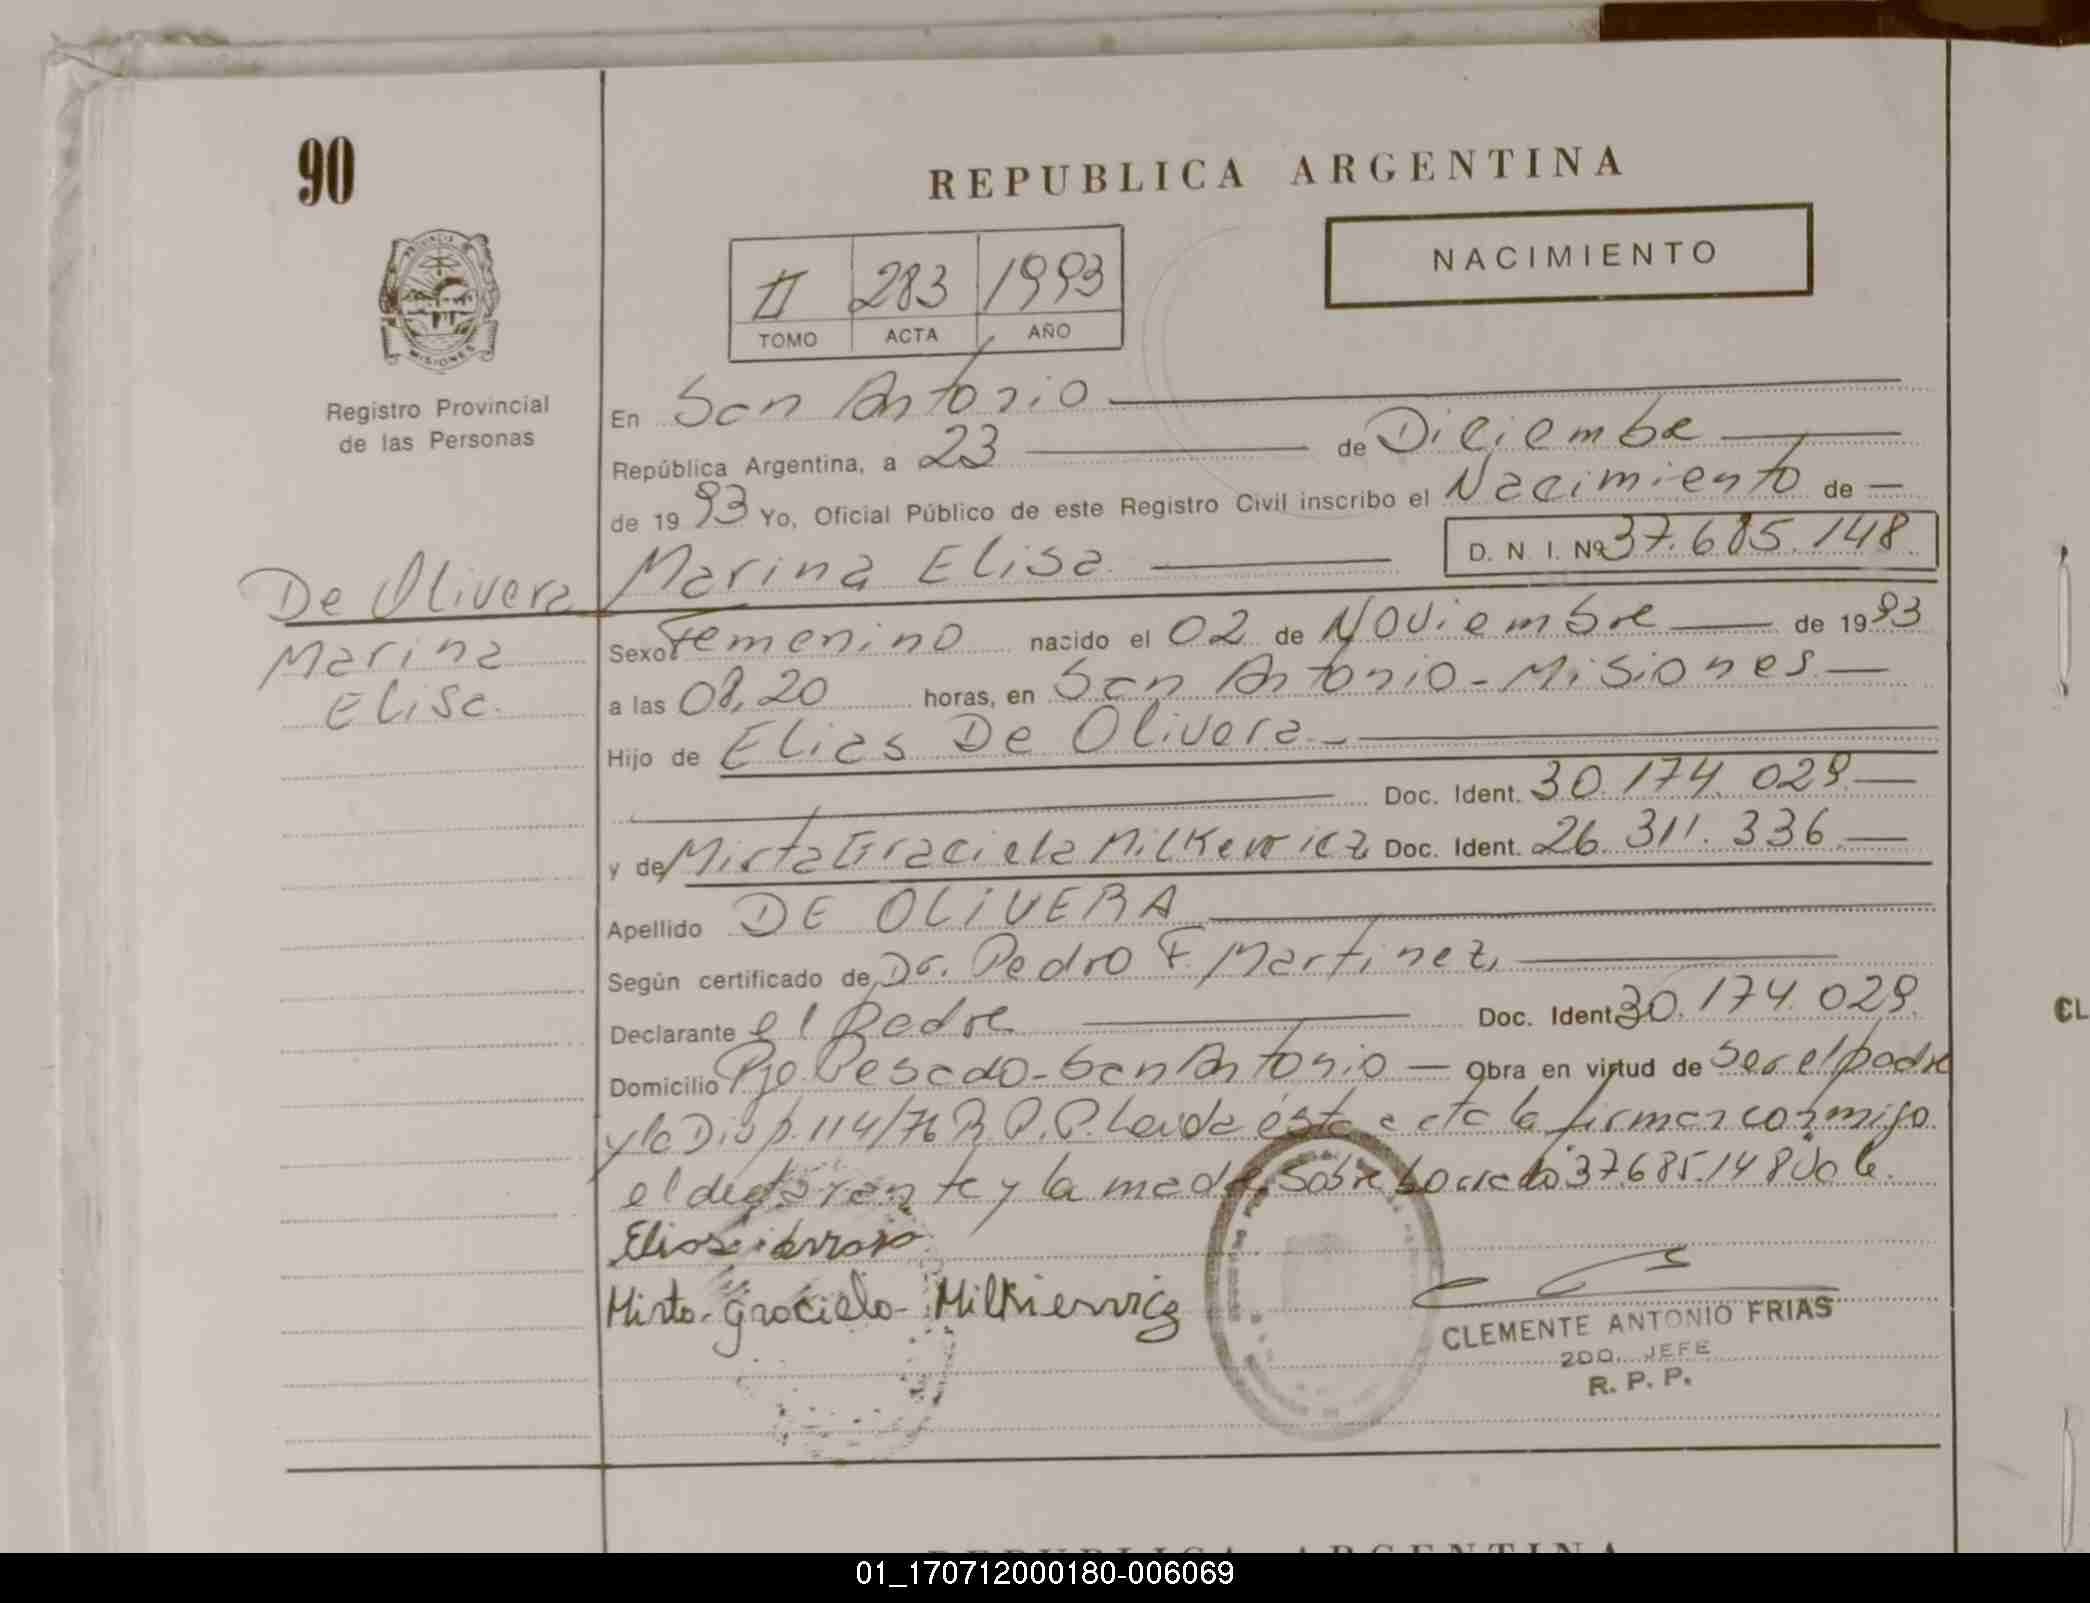 90
REPUBLICA ARGENTINA
NACIMIENTO
II 283 1993
TOMO ACTA AÑO
MISIONES
Registro Provincial
de las Personas
En San Antonio
República Argentina, a 23 de Diciembre
de 1993 Yo, Oficial Público de este Registro Civil inscribo el Nacimiento de
De Olivera Marina Elisa D. N. I. Nº 37.685.148
Marina
Elisa
Sexo Femenino nacido el 02 de Noviembre de 1993
a las 08,20 horas, en San Antonio - Misiones
Hijo de Elias De Olivera
Doc. Ident. 30.174.029
y de Mirta Graciela Milkewicz Doc. Ident. 26.311.336
Apellido DE OLIVERA
Según certificado de Dr. Pedro F. Martinez,
Declarante el Padre Doc. Ident 30.174.029
Domicilio Pje. Pesado - San Antonio Obra en virtud de Ser el padre
y la Disp. 114/76 R.P.P. Leida ésta acta la firman conmigo
el declarante y la madre, Sobre borrado: 37.685.148 Vale.
Elias
Mirta Graciela Milkiewicz
CLEMENTE ANTONIO FRIAS
2DO. JEFE
R. P. P.
CL
REPUBLICA ARGENTINA
01_170712000180-006069